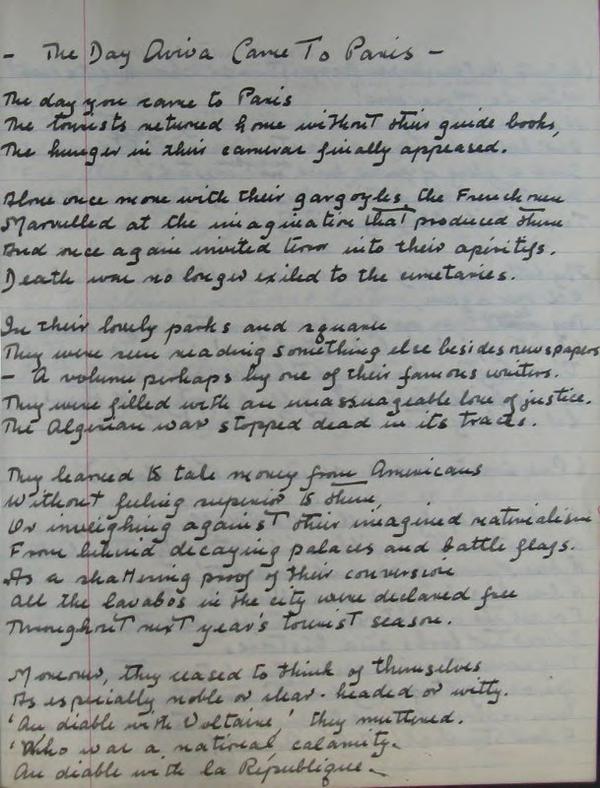 - The Day Aviva Came To Paris -
The day you came to Paris
The tourists returned home without their guide books,
The hunger in their cameras finally appeased.
Alone once more with their gargoyles, the Frenchmen
Marvelled at the imagination that produced them
And once again invited terror into their apéritifs.
Death was no longer exiled to the cemetaries.
In their lovely parks and squares
They were seen reading something else besides newspapers
- A volume perhaps by one of their famous writers.
They were filled with an unassuageable love of justice.
The Algerian war stopped dead in its tracks.
They learned to take money from Americans
Without feeling superior to them,
Or inveighing against their imagined materialism
From behind decaying palaces and battle flags.
As a shattering proof of their conversion
All the lavabos in the city were declared free
Throughout next year's tourist season.
Moreover, they ceased to think of themselves
As especially noble or clear-headed or witty.
'Au diable with Voltaire,' they muttered.
'Who was a national calamity.
Au diable with la République.